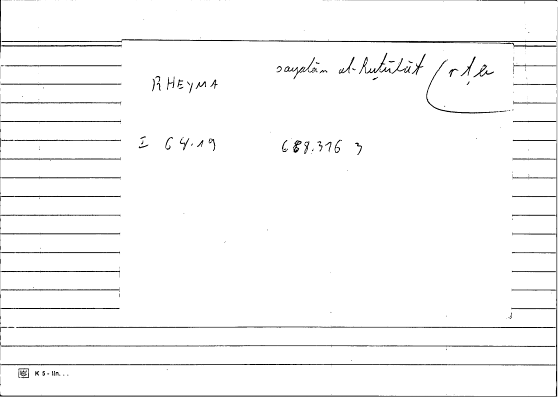 sayalān al-ruṭūbāt (r ṭ b
RHEYMA
I 64.19 688.316 3
K 5 - lin. . .